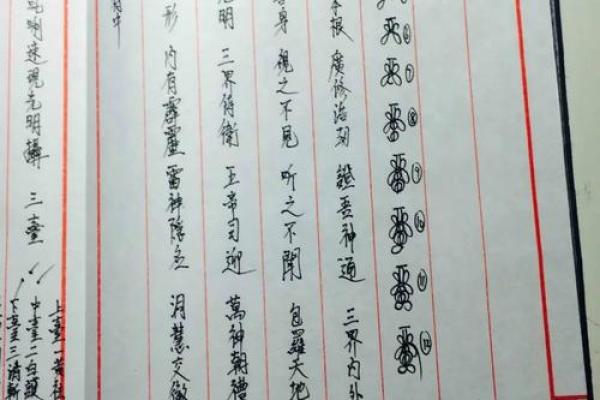 ⑥
⑦
⑧
⑨
⑩
⑪
⑫
本根 廣修浩劫 證吾神通 三界內外
吾身 視之不見 听之不聞 包羅天地
光明 三界侍衛 五帝司迎 萬神朝禮
形 內有霹靂 雷神隱名 洞慧交徹
中
速現光明攝 三臺
上臺一黃祛
中臺二白護
下臺三清斬